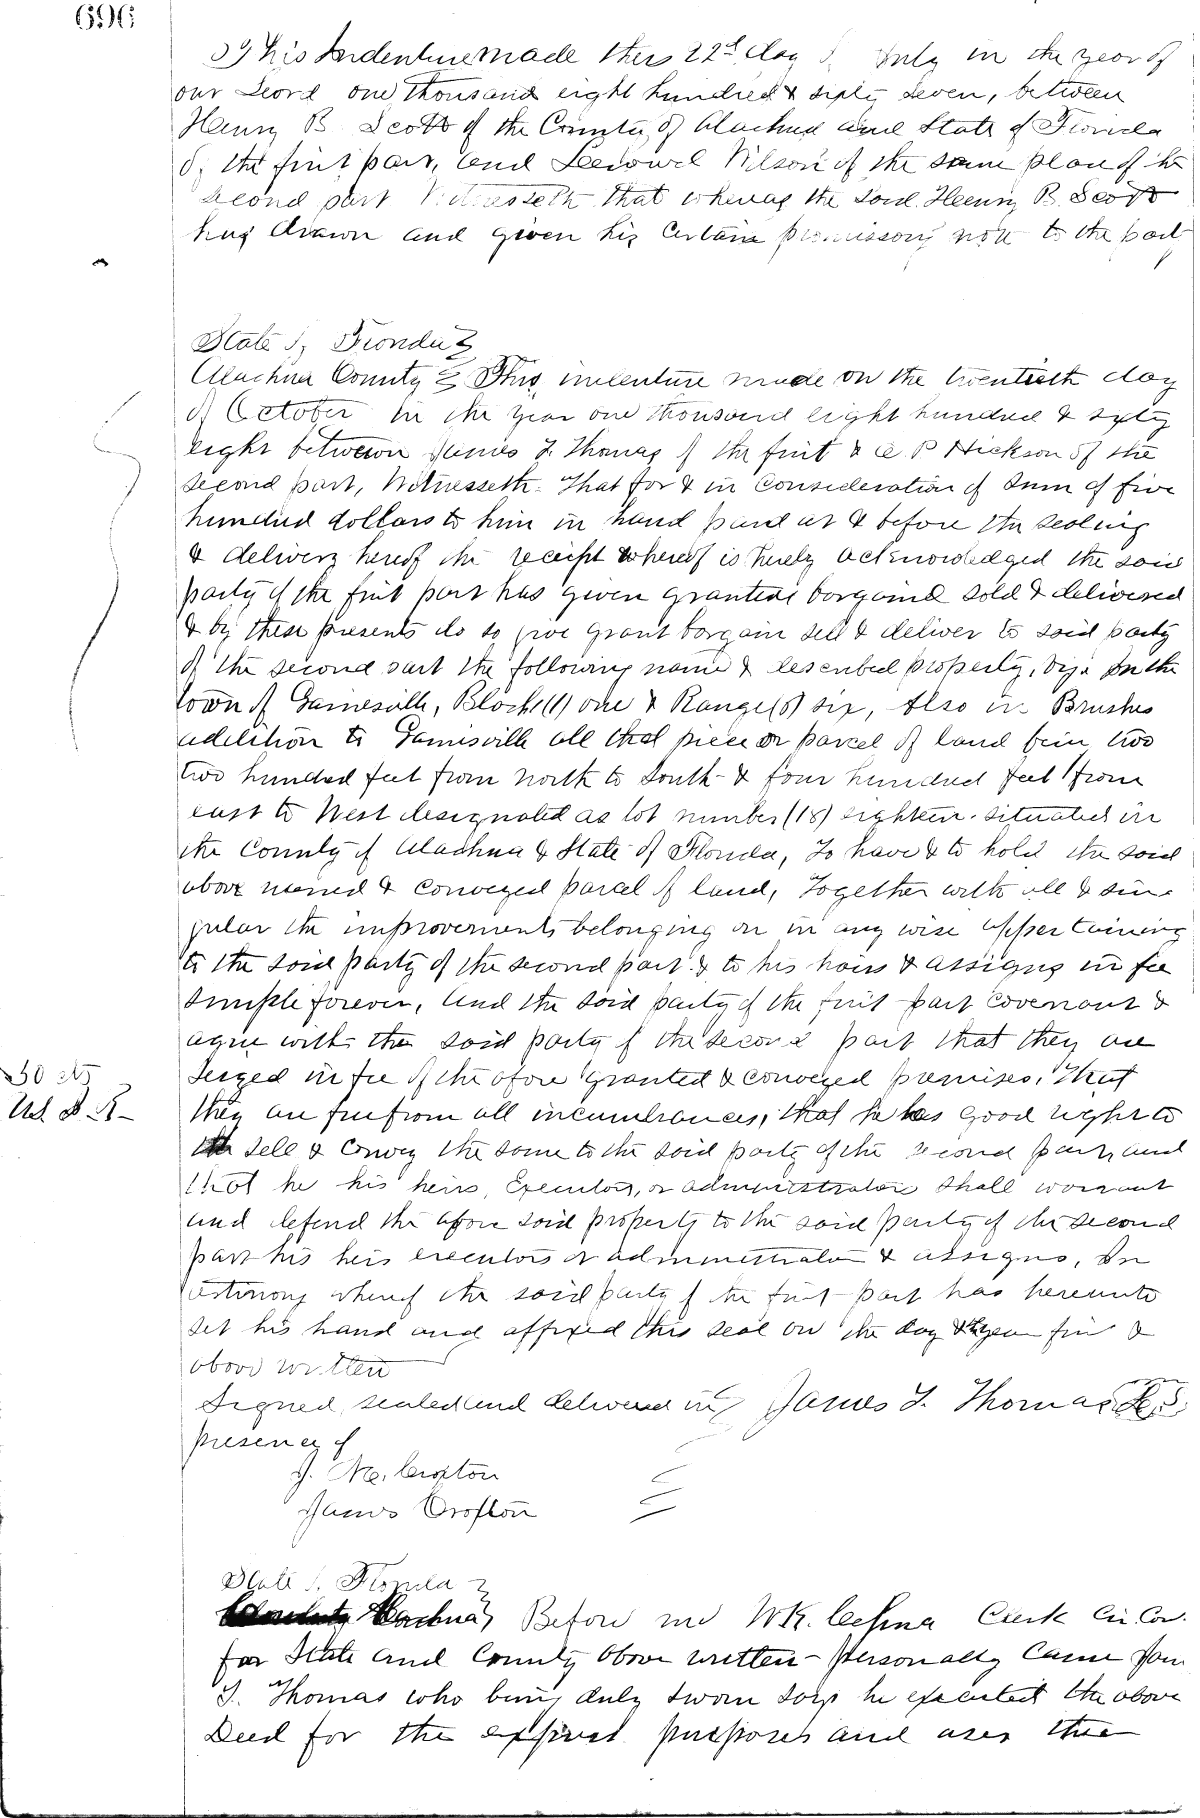 696
This Indenture made this 22d day of July in the year of
our Lord one thousand eight hundred & sixty seven, between
Henry B Scott of the County of Alachua and State of Florida
of the first part, and Wilson of the same place of the
second part Witnesseth that whereas the said Henry B. Scott
has drawn and given his certain promissory note to the part
State of Florida
Alachua County This indenture made on the twentieth day
of October in the year one thousand eight hundred & sixty
eight between James T. Thomas of the first & P Hickson of the
second part, Witnesseth. That for & in consideration of sum of five
hundred dollars to him in hand paid at & before the sealing
& delivery hereof the receipt whereof is hereby acknowledged the said
party of the first part has given granted bargained sold & delivered
& by these presents do so give grant bargain sell & deliver to said party
of the second part the following name & described property, viz. In the
town of Gainesville, Block (1) one & Range (6) six, Also in Brushes
addition to Gainesville all that piece or parcel of land being two
two hundred feet from North to South & four hundred feet from
east to West designated as lot number (18) eighteen. situated in
the County of Alachua & State of Florida, To have & to hold the said
above named & conveyed parcel of land, Together with all & sin
gular the improvements belonging or in any wise appertaining
to the said party of the second part & to his heirs & assigns in fee
simple forever, And the said party of the first part covenant &
agree with the said party of the second part that they are
seized in fee of the afore granted & conveyed premises, That
they are free from all incumbrances, that he has good right to
50 cts
U.S. I.R.
sell & convey the same to the said party of the second part, and
that he his heirs, Executors, or administrators shall warrant
and defend the afore said property to the said party of the second
part his heirs executors or administrator & assigns, In
testimony whereof the said party of the first part has hereunto
set his hand and affixed this seal on the day & year first &
above written
Signed, sealed and delivered in James T. Thomas L.S.
presence of
J. Crofton
James Crofton
State of Florida
Alachua Before me W.K. Cessna Clerk Cir. Cou.
for State and County above written - personally came Jam
T. Thomas who being duly sworn says he executed the above
Deed for the express purposes and uses the